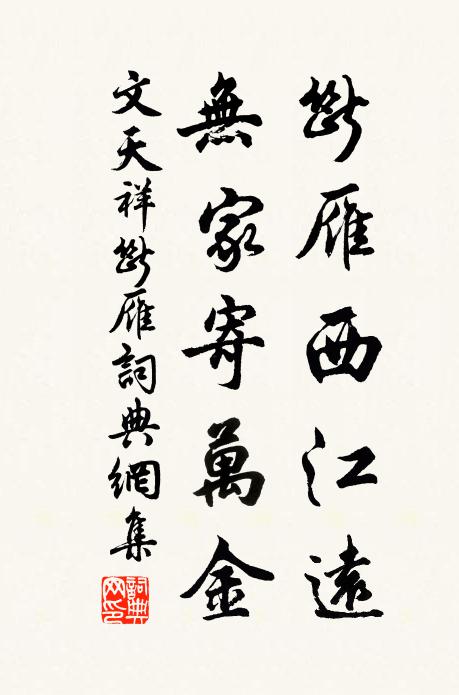 斷雁西江遠
無家寄萬金
文天祥斷雁詞典網集
詞典网印